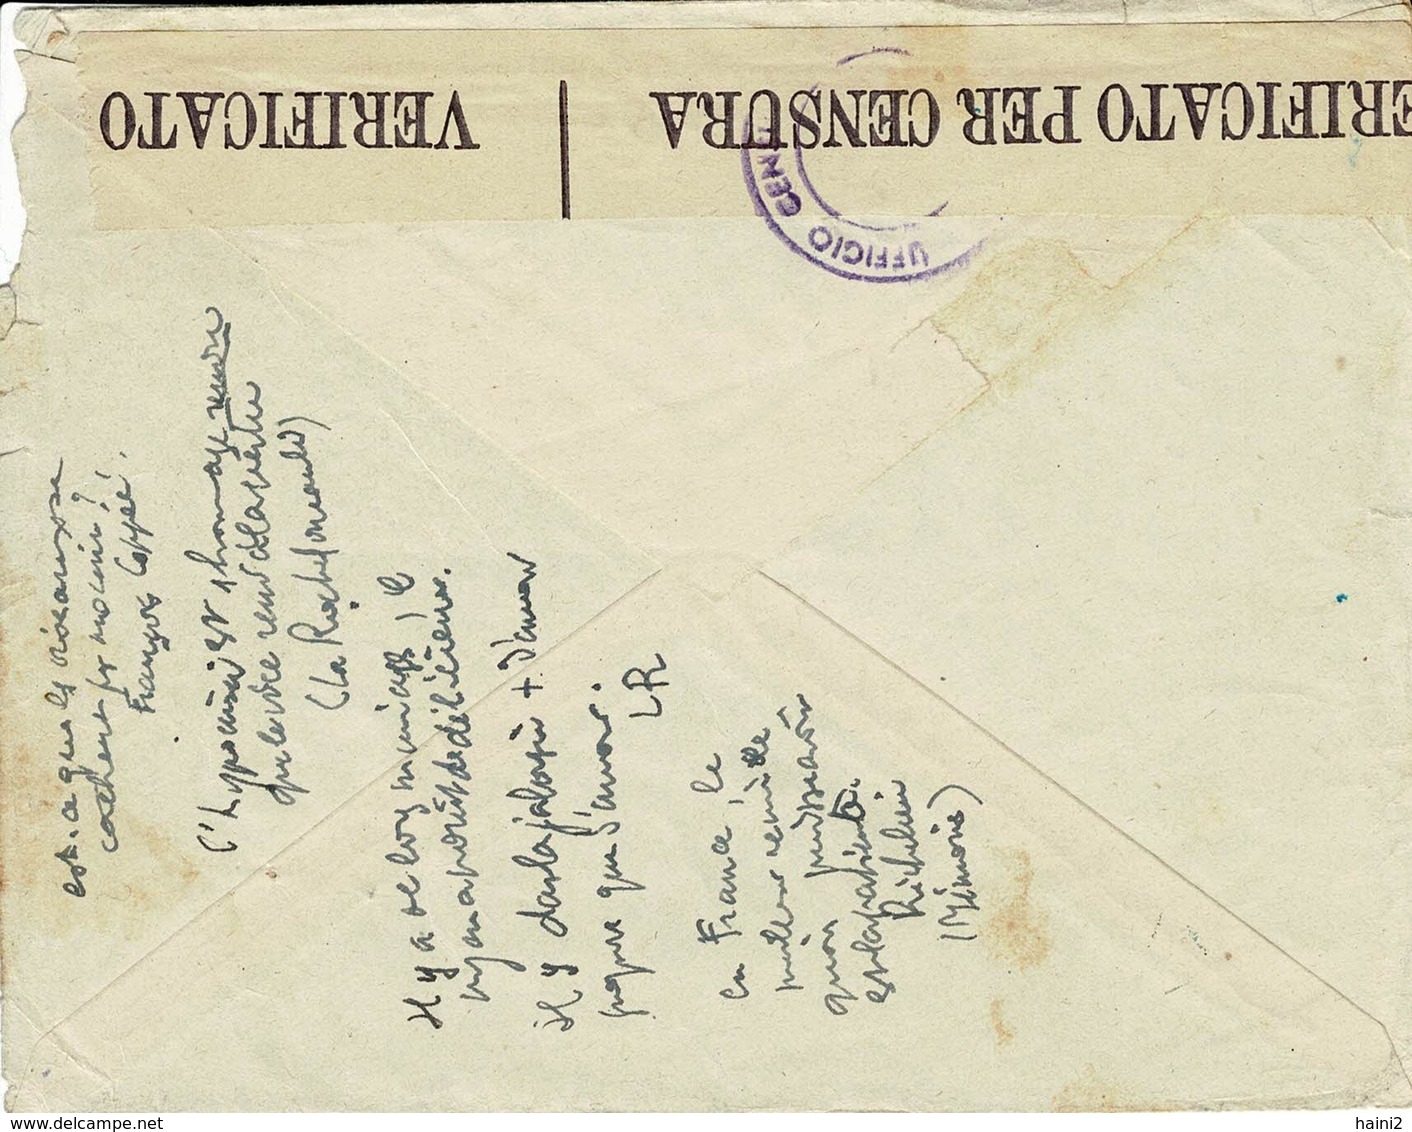 VERIFICATO
VERIFICATO PER CENSURA
UFFICIO CEN
est-ce que les oiseaux se
cachent pr mourir ?
François Coppée !
l'hypocrisie est 1 hommage
que le vice rend à la vertu
(La Rochefoucauld)
il y a de bons mariages, il
n'y en a point de délicieux.
il y dans la jalousie + d'amour
propre que d'amour.
LR
en France, le
meilleur remède
qu'on puisse avoir
est la patience.
Richelieu
(Mémoires)
www.delcampe.net
haini2